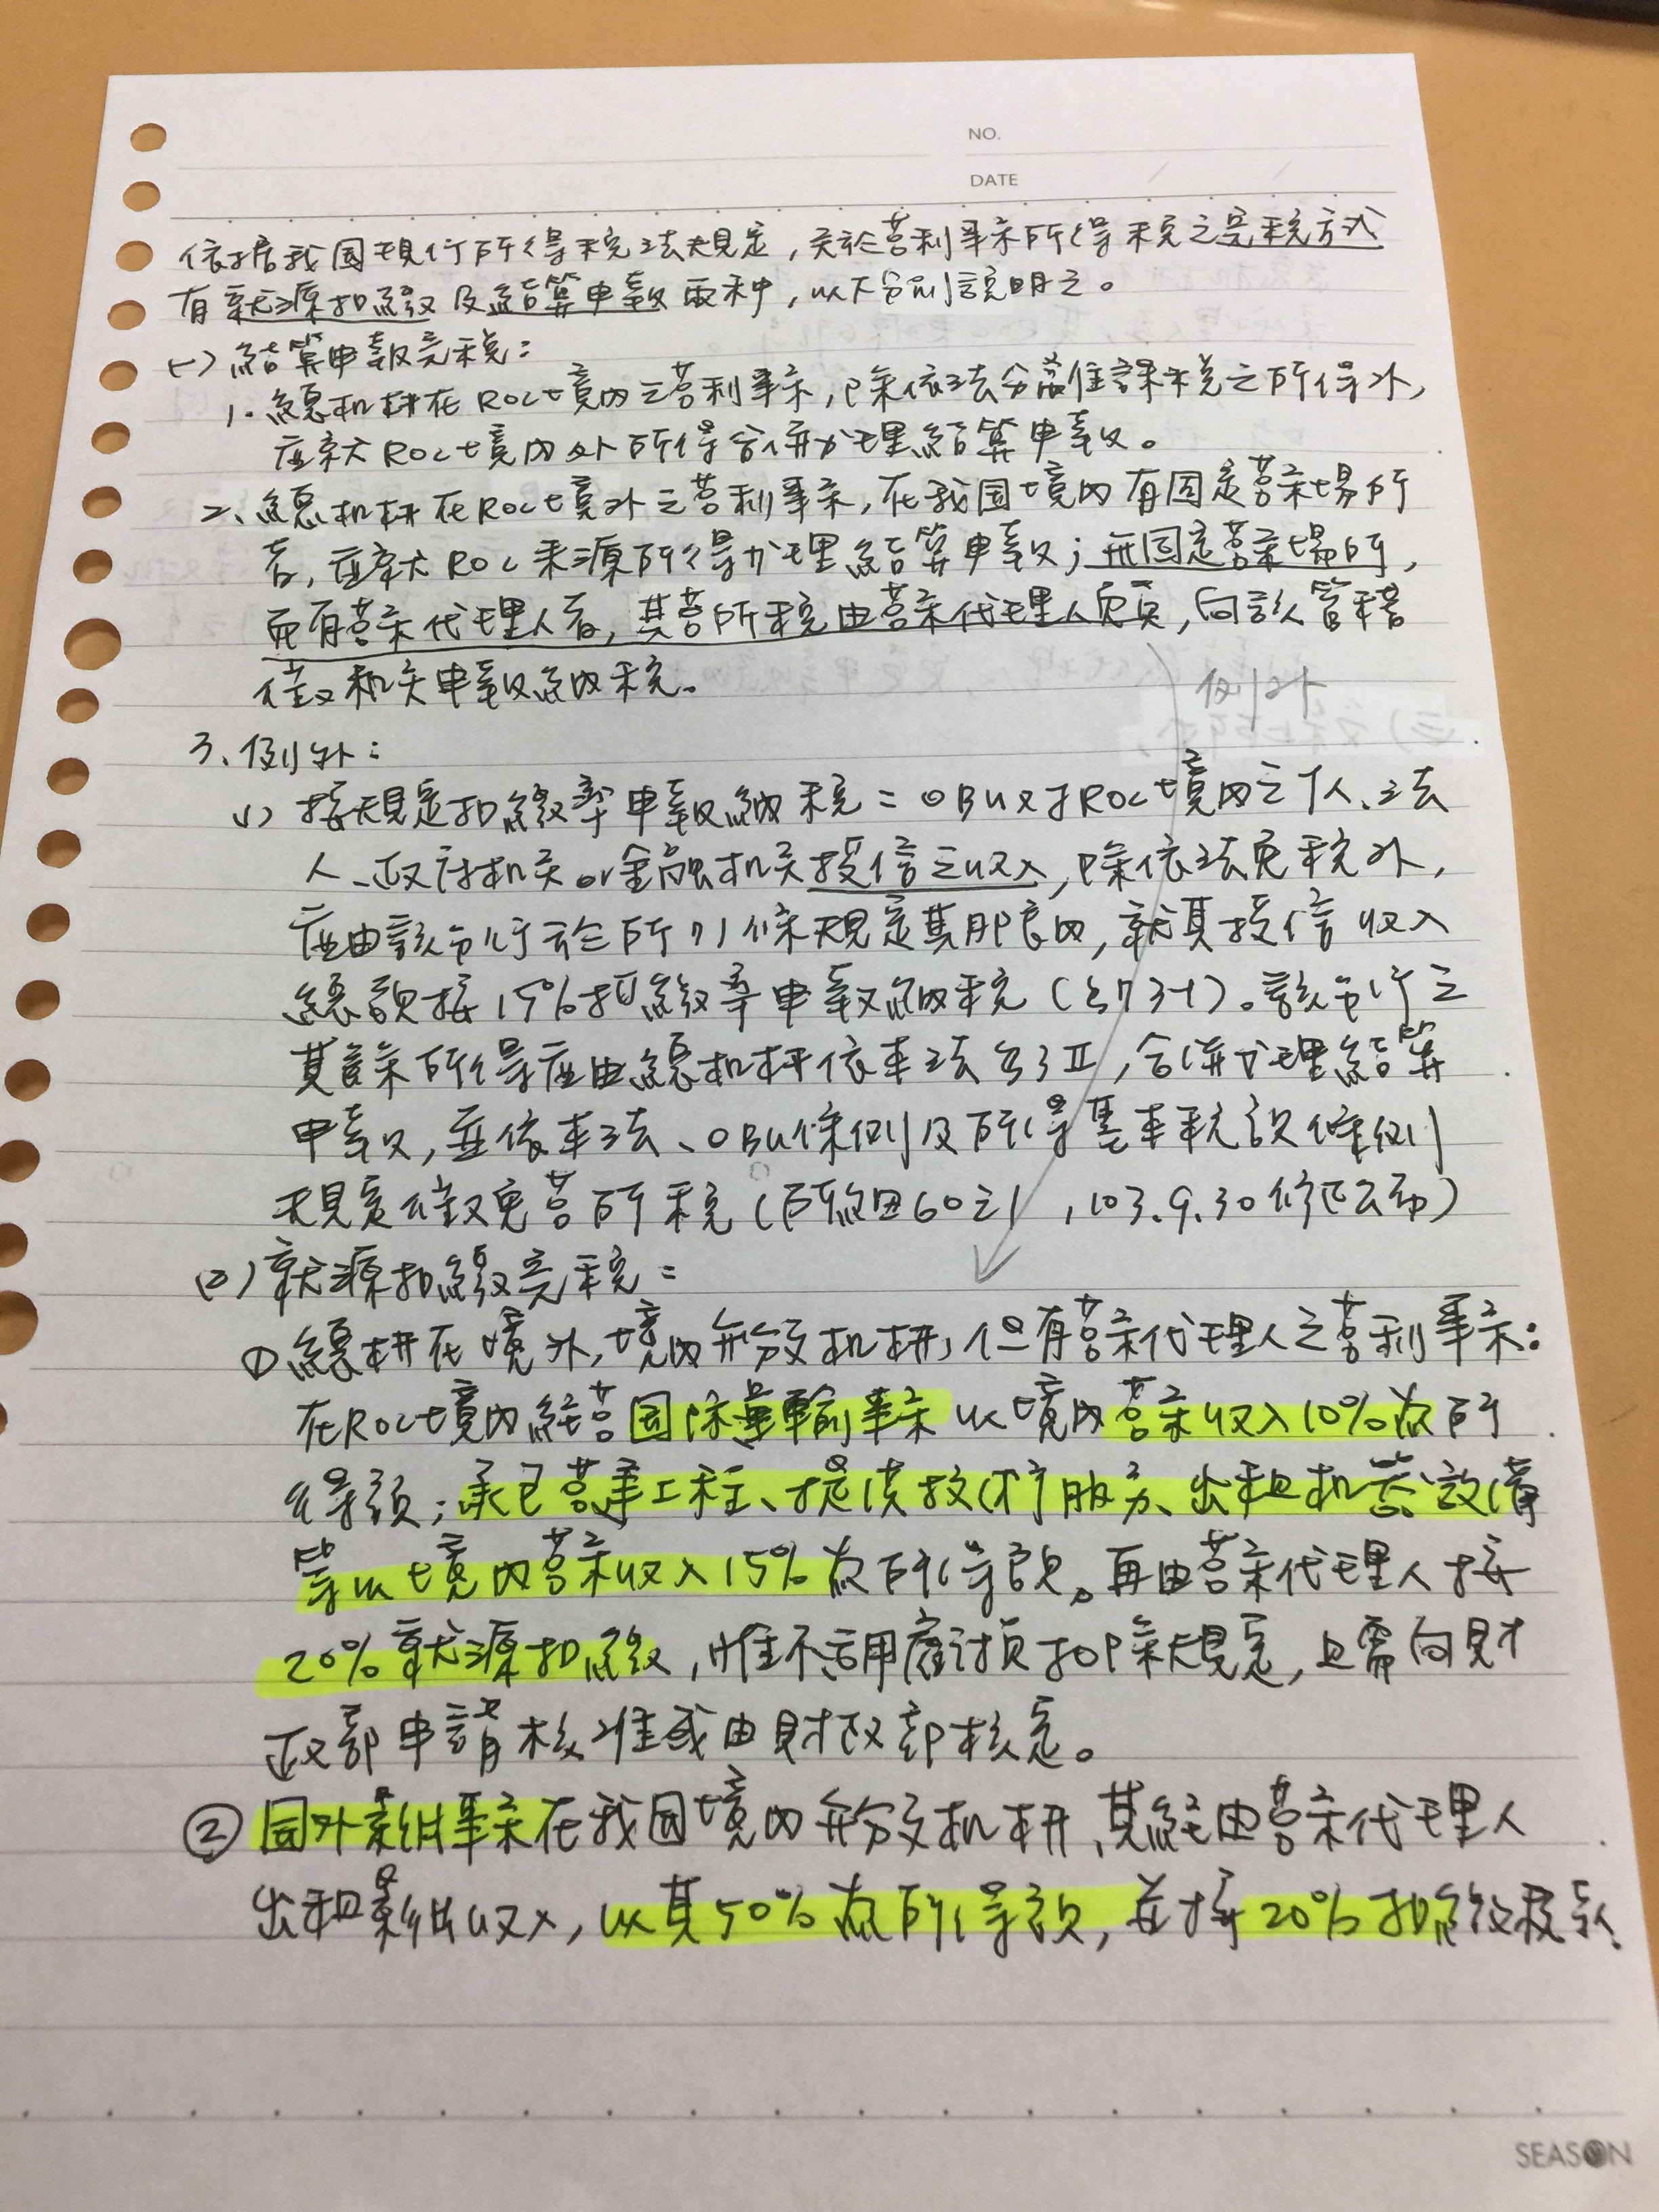 NO.
DATE
依據我国現行所得稅法規定，关於营利事業所得稅之完稅方式
有就源扣繳及結算申報兩种，以下分別說明之。
(一) 結算申報完稅：
1. 總机构在ROC境內之营利事業，除依法分離課稅之所得外，
應就ROC境內外所得合併办理結算申報。
2、總机构在ROC境外之营利事業，在我国境內有固定营業場所
者，應就ROC來源所得办理結算申報；無固定营業場所，
而有营業代理人者，其营所稅由营業代理人負責，向該管稽
徵机关申報納稅。
例外
3、例外：
(1) 按規定扣繳率申報納稅：OBU对ROC境內之个人、法
人、政府机关or金融机关授信之收入，除依法免稅外，
應由該分行於所71條規定其限內，就其授信收入
總額按15%扣繳率申報納稅（§73-1）。該分行之
其餘所得應由總机构依本法§3Ⅱ，合併办理結算
申報，並依本法、OBU條例及所得基本稅額條例
規定徵免营所稅（所細60之1，103.9.30修正公布）
(二) 就源扣繳完稅：
① 總构在境外，境內無分支机构，但有营業代理人之营利事業：
在ROC境內經营国际運輸事業以境內营業收入10%為所
得額；承包营建工程、提供技術服务、出租机器設備
等以境內营業收入15%為所得額。再由营業代理人按
20%就源扣繳，惟不适用虧損扣除規定，且需向財
政部申請核准或由財政部核定。
② 国外影片事業在我国境內無分支机构、其經由营業代理人
出租影片收入，以其50%為所得額，並按20%扣繳稅款
SEASON